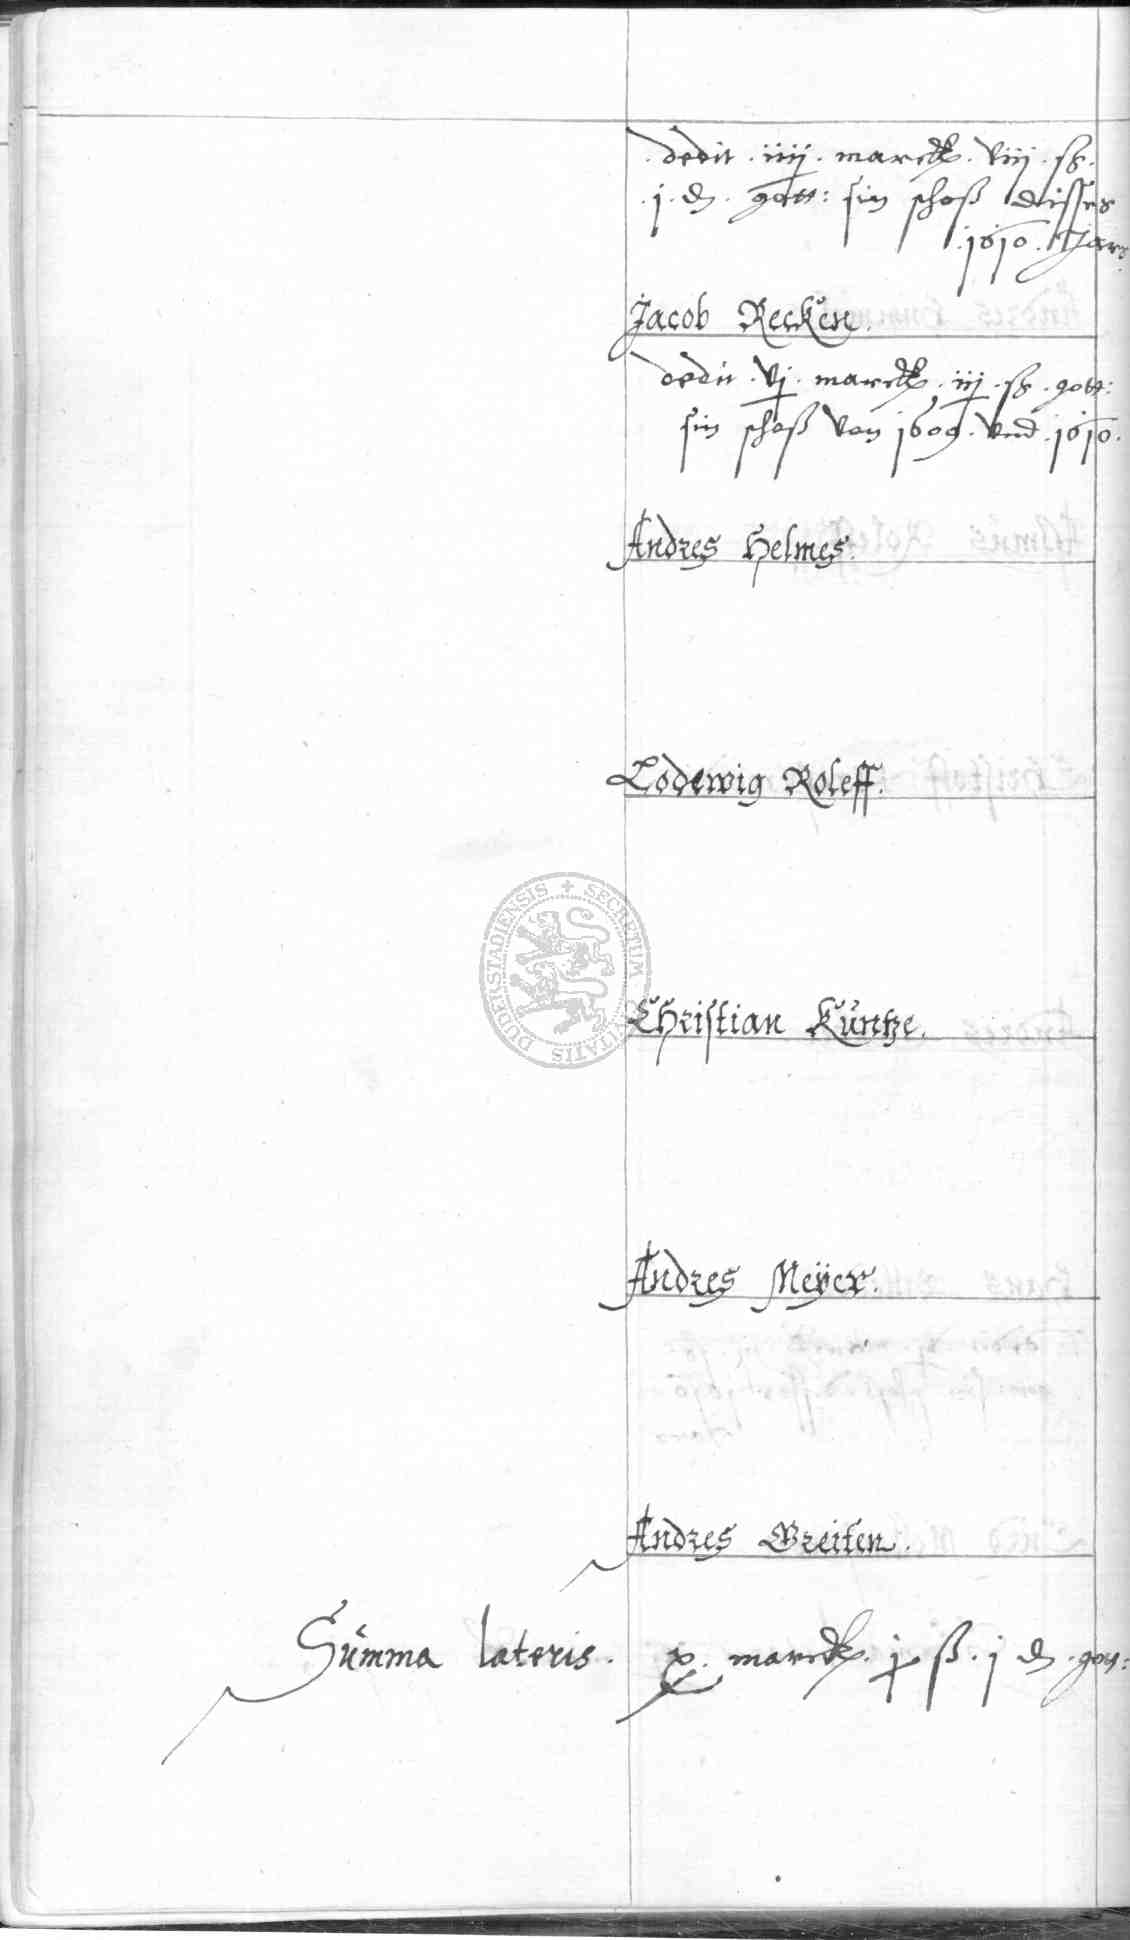 dedit . iiij . marck . viij . ß .
. j . d . gott : sin schoß disses
. 1610 . Jars
Jacob Recken .
dedit . vj . marck . iij . ß . gott :
sin schoß von 1609 . vnd . 1610 .
Andres Helmes .
Lodewig Roleff .
+ SECRETUM CIVITATIS DUDERSTADIENSIS
Christian Küntze .
Andres Meÿer .
Andres Breiten .
Summa lateris . x . marck . j ß . j d . gott :